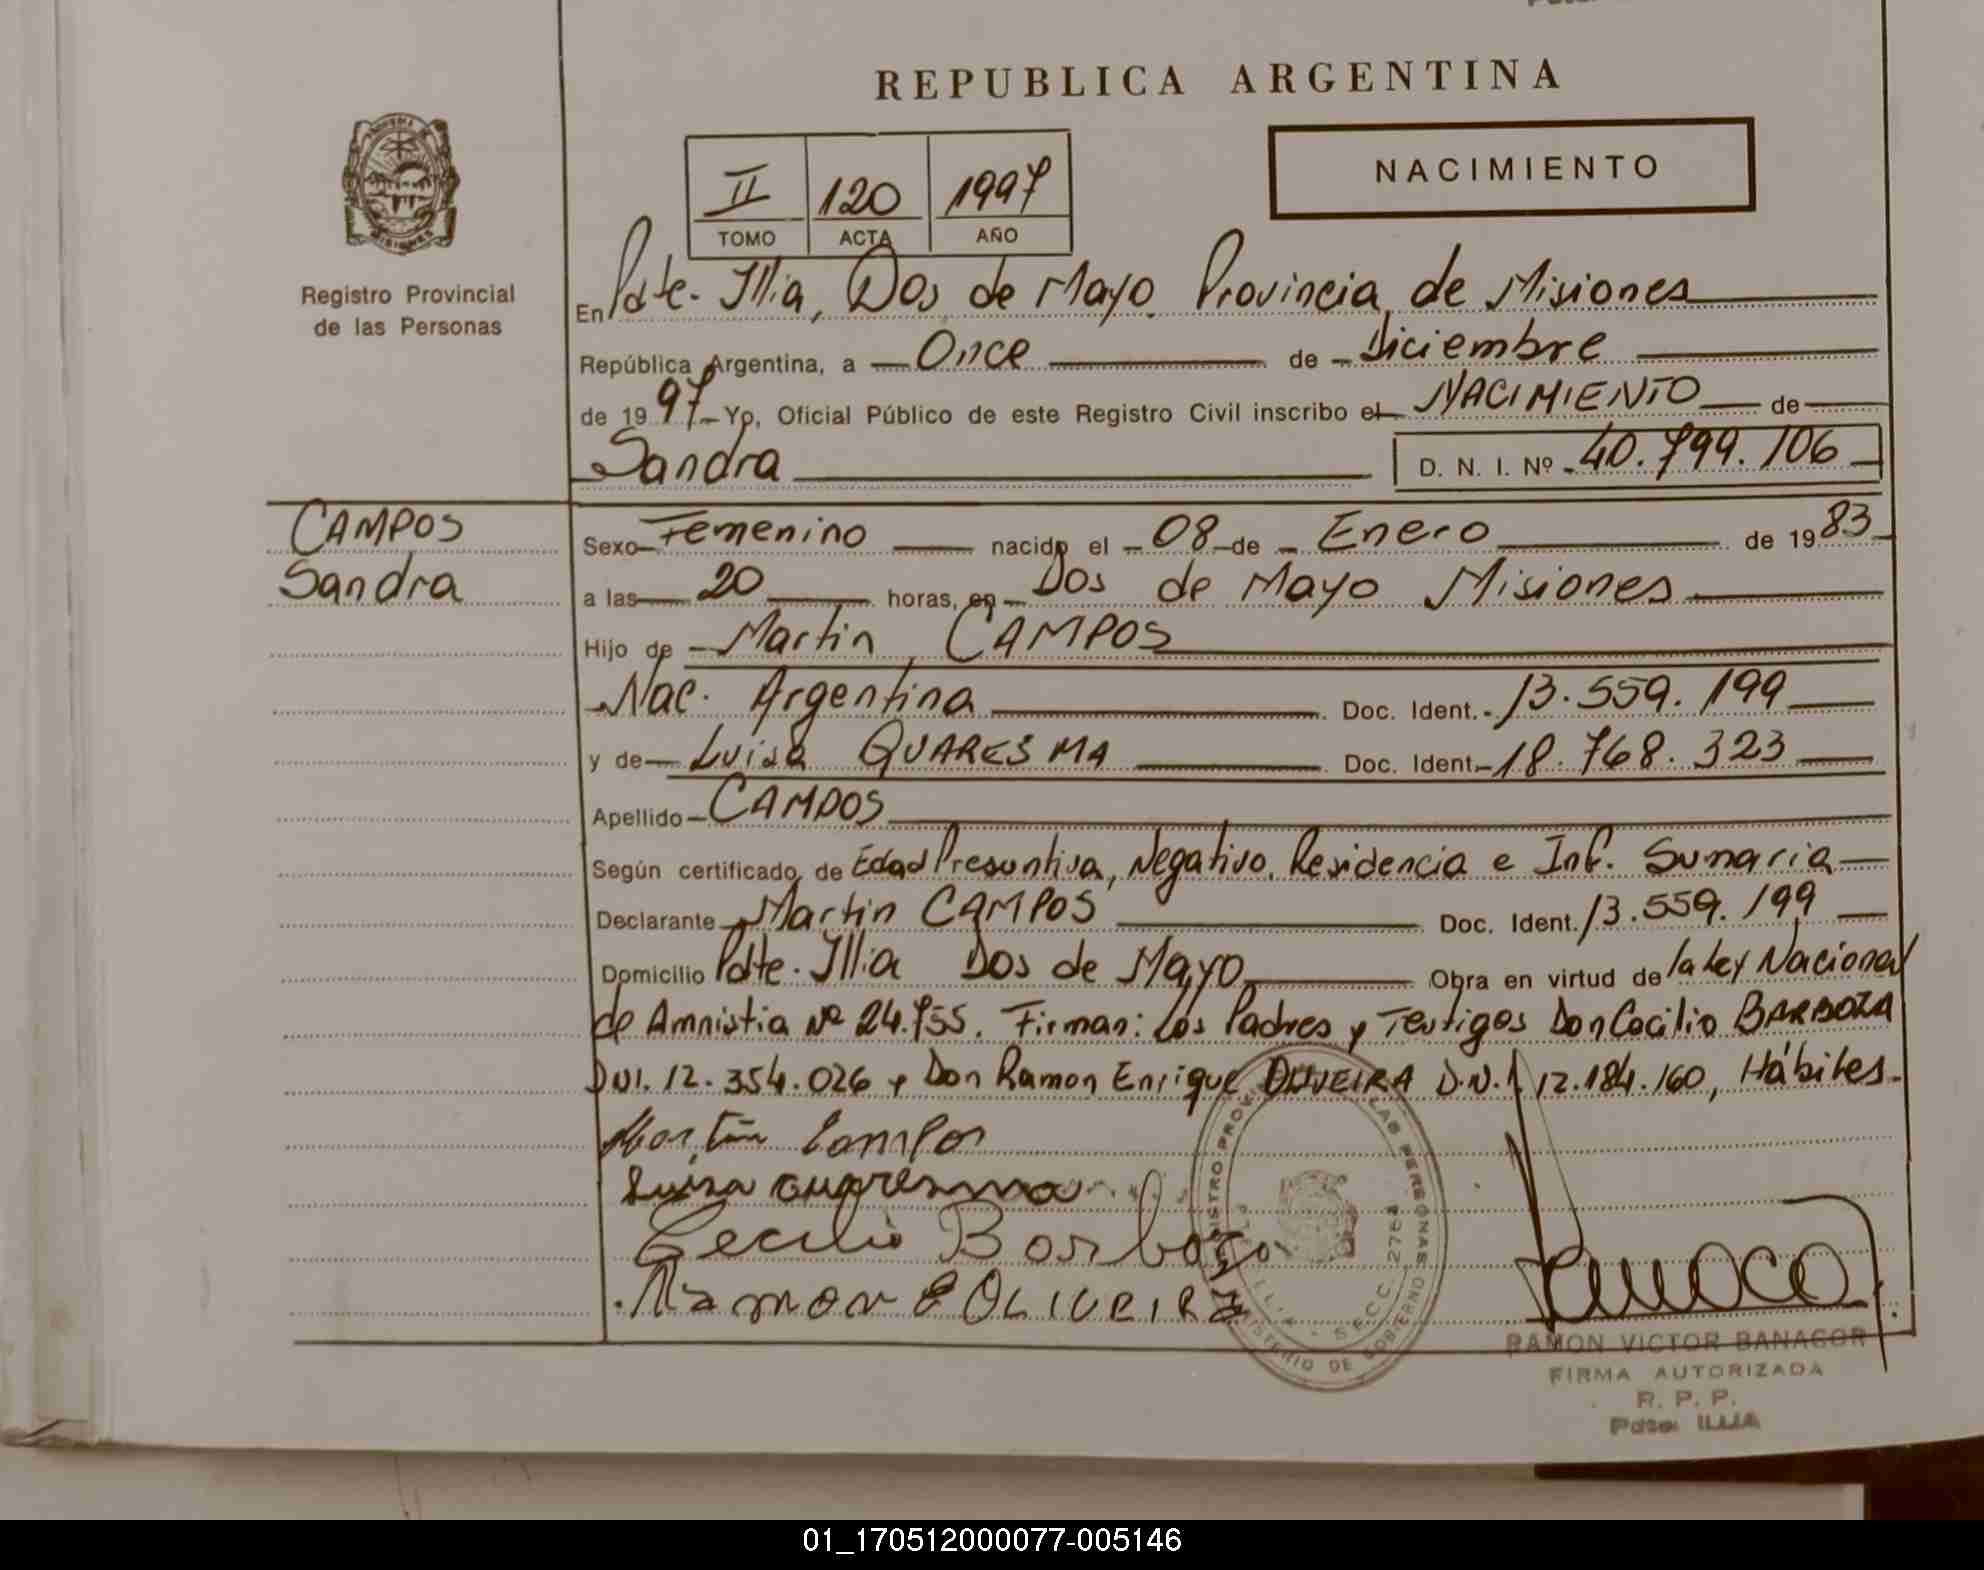 REPUBLICA ARGENTINA
NACIMIENTO
II 120 1997
TOMO ACTA AÑO
Registro Provincial
de las Personas
En Pdte. Illia, Dos de Mayo. Provincia de Misiones
República Argentina, a Once de Diciembre
de 1997 Yo, Oficial Público de este Registro Civil inscribo el NACIMIENTO de
Sandra D. N. I. Nº 40.799.106
CAMPOS
Sandra
Sexo Femenino nacido el 08 de Enero de 1983
a las 20 horas, en Dos de Mayo Misiones
Hijo de Martin CAMPOS
Nac. Argentina Doc. Ident. 13.559.199
y de Luisa QUARESMA Doc. Ident. 18.768.323
Apellido CAMPOS
Según certificado de Edad Presuntiva, Negativo, Residencia e Inf. Sumaria
Declarante Martin CAMPOS Doc. Ident. 13.559.199
Domicilio Pdte. Illia Dos de Mayo Obra en virtud de la Ley Nacional
de Amnistia Nº 24.755. Firman: Los Padres y Testigos Don Cecilio BARBOZA
DNI. 12.354.026 y Don Ramon Enrique OLIVEIRA D.N.I 12.184.160, Hábiles.
Martin Campos
Luisa cuaresma
Cecilio Barboza
Ramon E OLIVEIRA
MINISTERIO DE GOBIERNO
SECC. 2764
RAMON VICTOR BANACOR
FIRMA AUTORIZADA
R. P. P.
Pdte. ILLIA
01_170512000077-005146